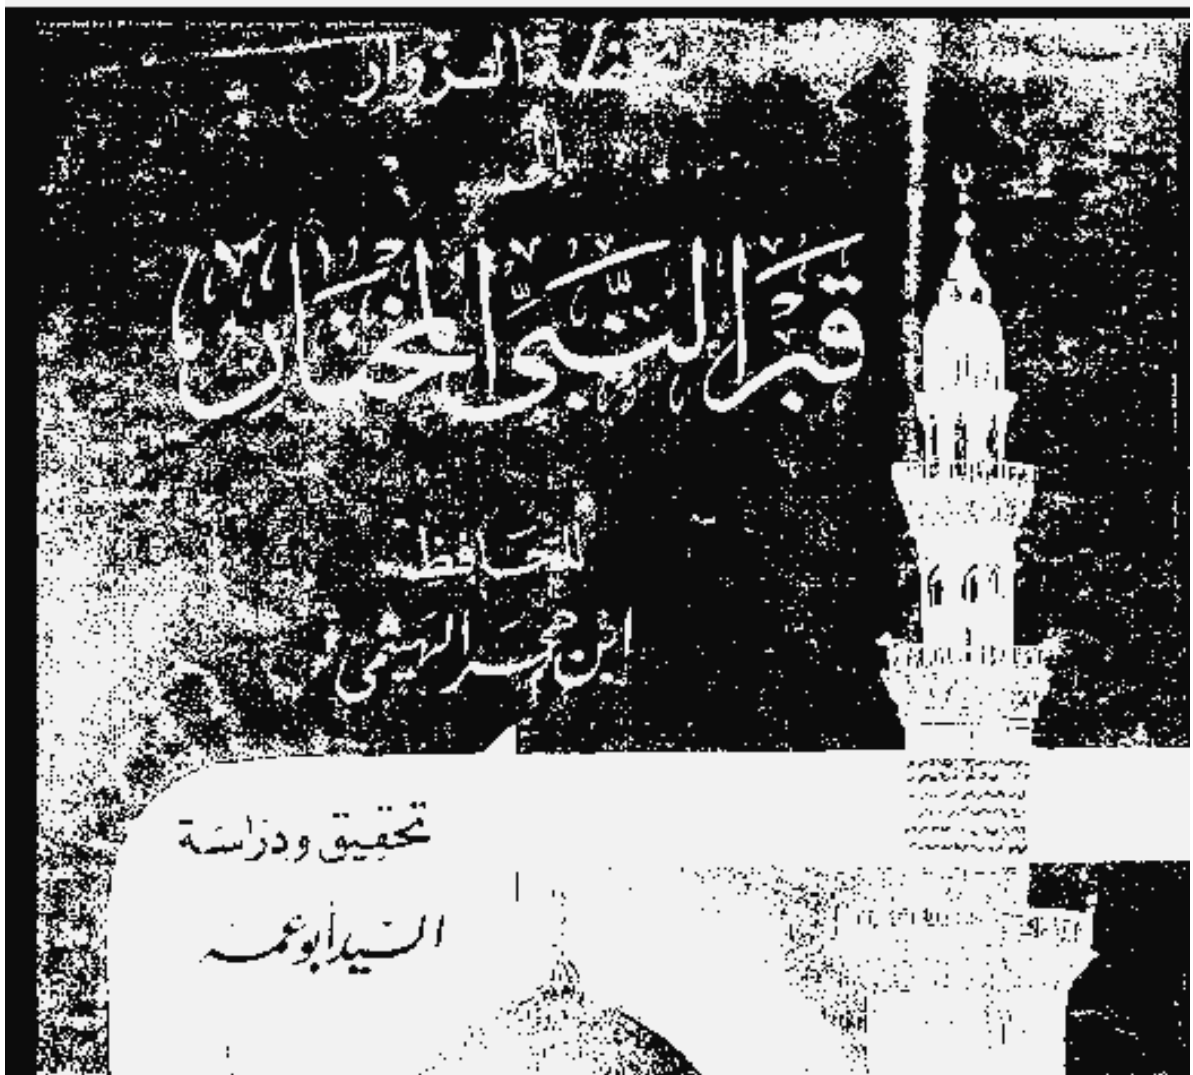 تحفة الزوار
إلى
قبر النبي المختار
للحافظ
ابن حجر الهيثمي
تحقيق ودراسة
السيد أبو عمه